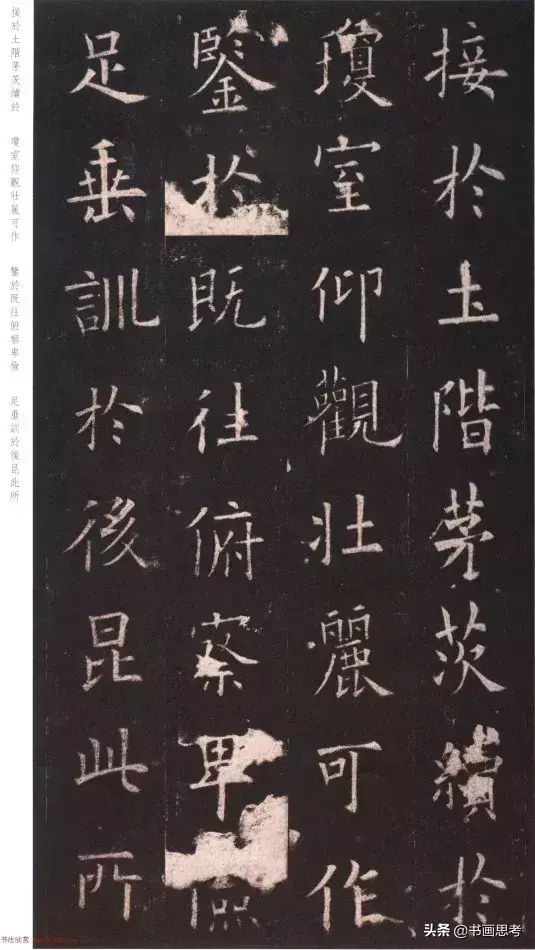 接於土階茅茨續於
瓊室仰觀壯麗可作
鑒於既往俯察卑儉
足垂訓於後昆此所
接於土階茅茨續於 瓊室仰觀壯麗可作 鑒於既往俯察卑儉 足垂訓於後昆此所
书池欣赏
头条 @书画思考